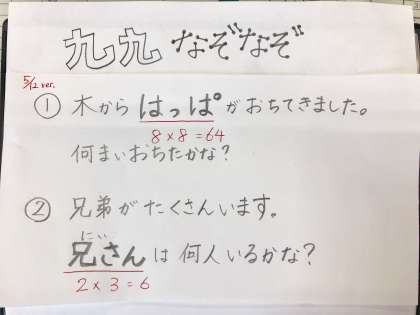 九九 なぞなぞ
5/12 ver.
① 木から はっぱ がおちてきました。
8×8=64
何まいおちたかな?
② 兄弟がたくさんいます。
にい
兄さん は 何人いるかな?
2×3=6